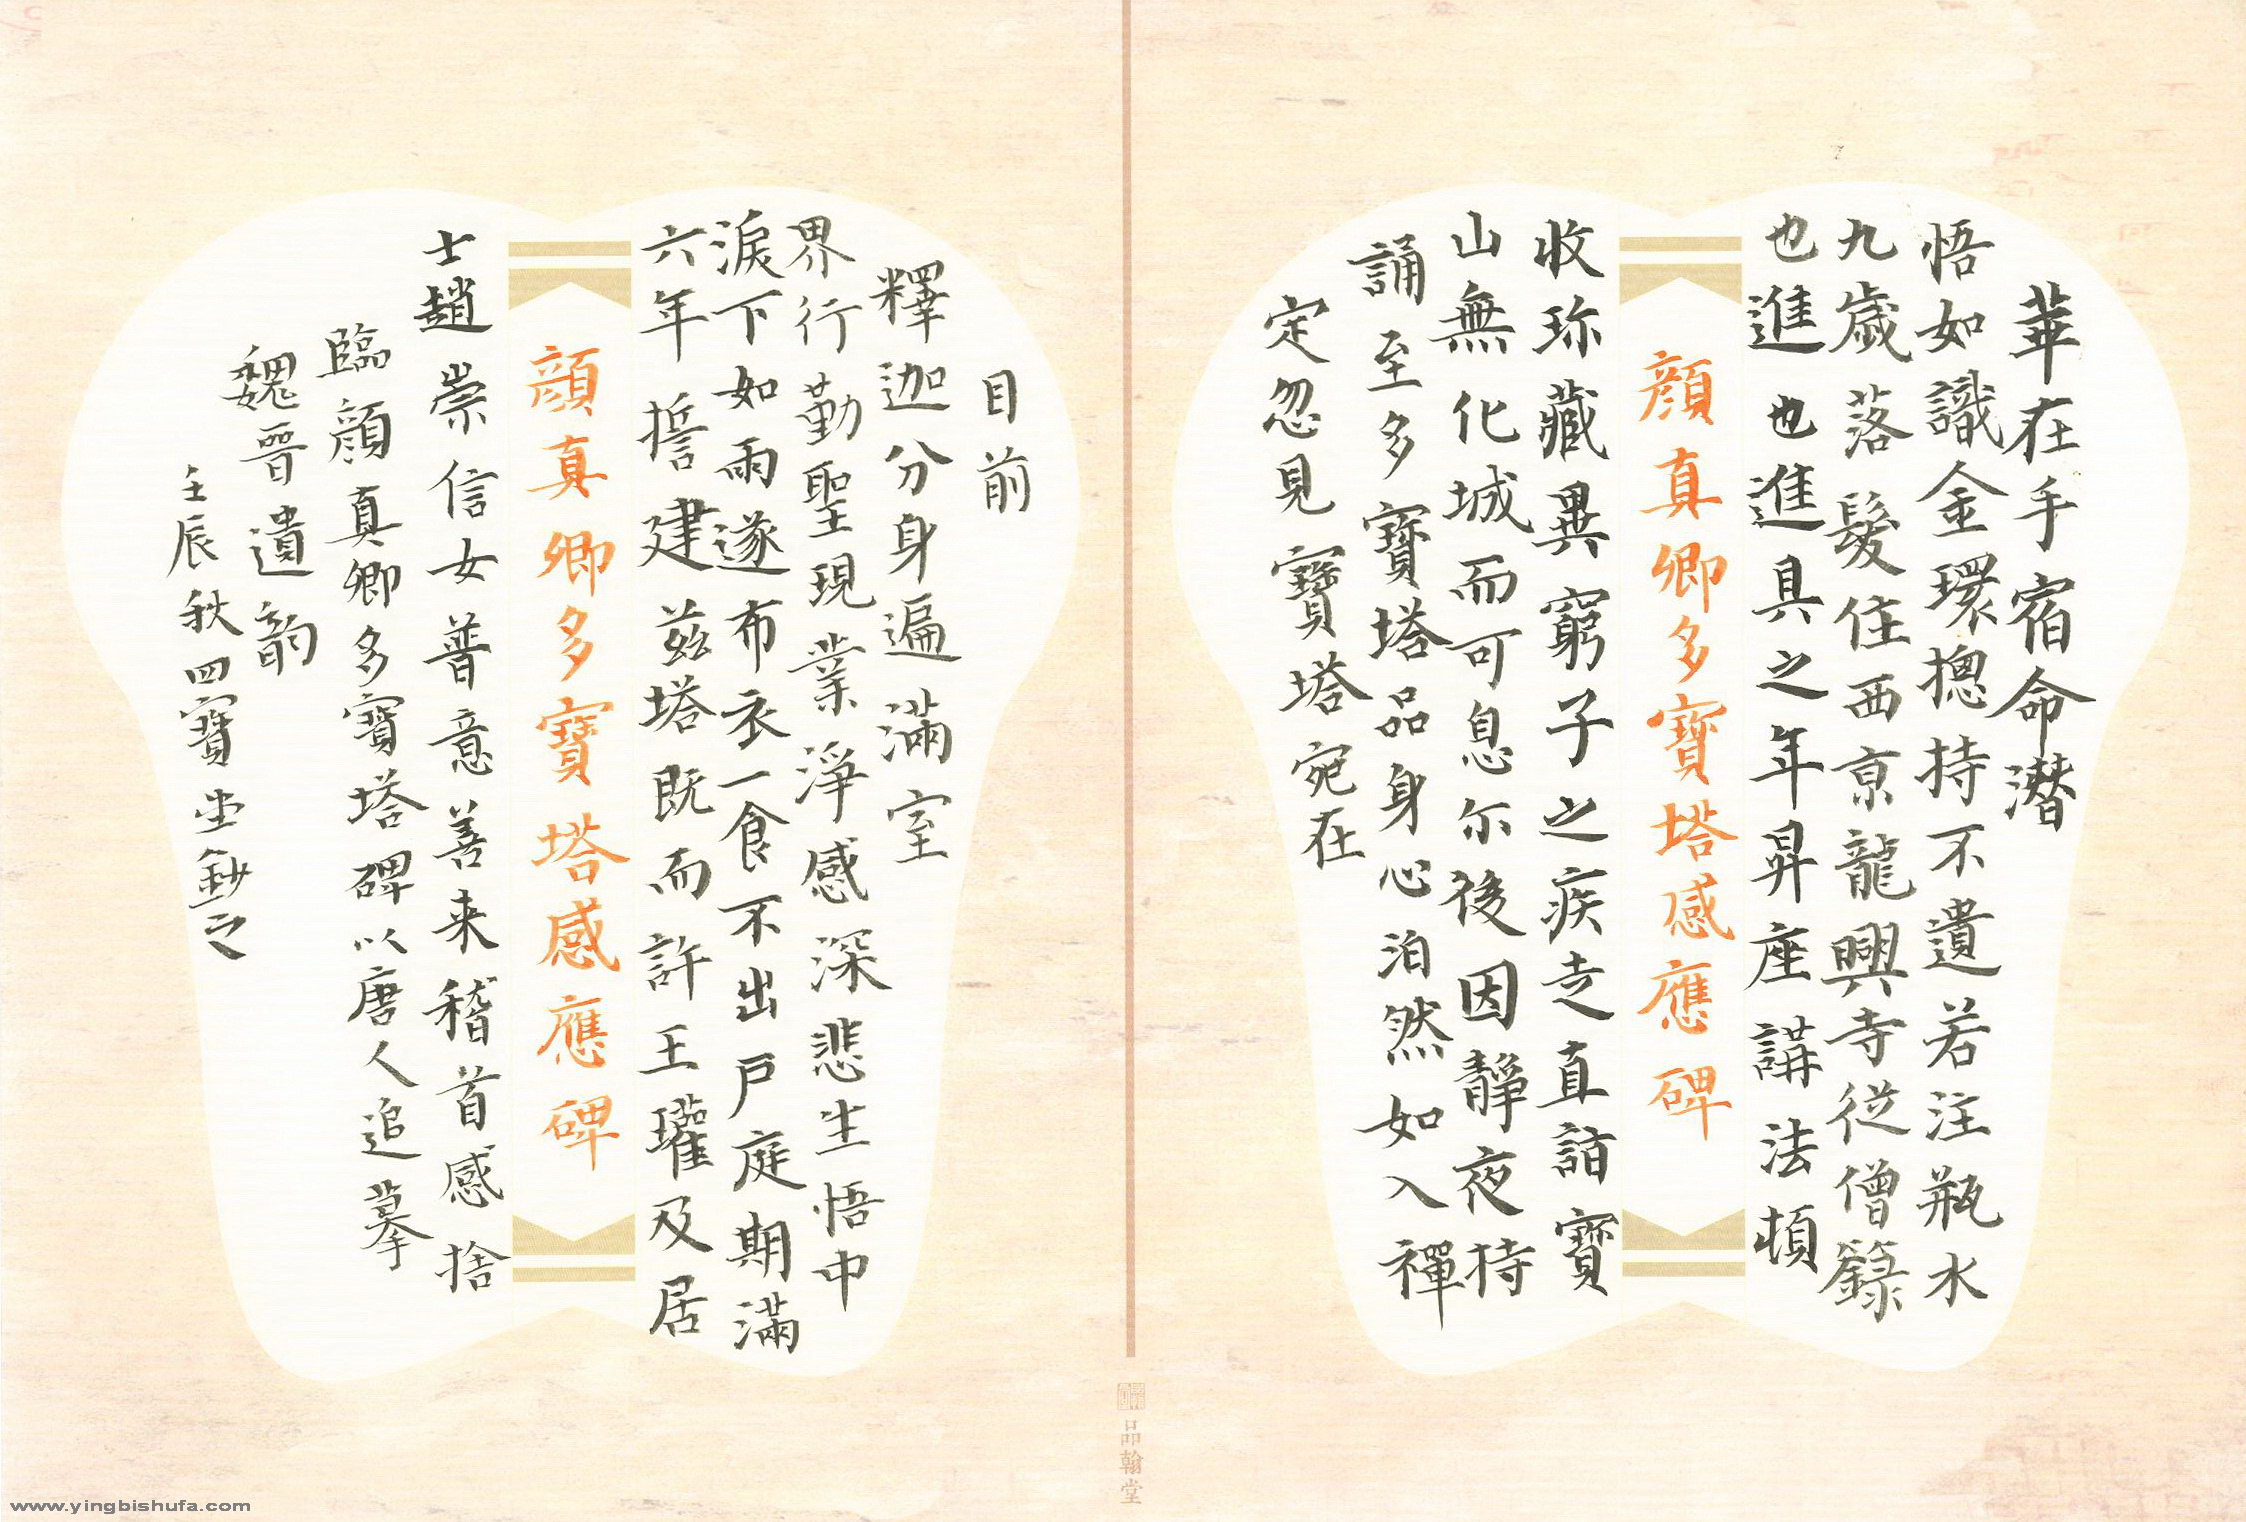 華在手宿命潜
悟如識金環揔持不遺若注瓶水
九歲落髮住西京龍興寺從僧籙
也進也進具之年昇座講法頓
顏真卿多寶塔感應碑
收珎藏異窮子之疾走直詣寶
山無化城而可息尔後因靜夜持
誦至多寶塔品身心泊然如入禪
定忽見寶塔宛在
目前
釋迦分身遍滿室
界行勤聖現業淨感深悲生悟中
淚下如雨遂布衣一食不出戶庭期滿
六年誓建茲塔既而許王瓘及居
顏真卿多寶塔感應碑
士趙崇信女普意善来稽首感捨
臨顏真卿多寶塔碑以唐人追摹
魏晉遺韵
壬辰秋四寶堂鈔之
品翰堂
www.yingbishufa.com